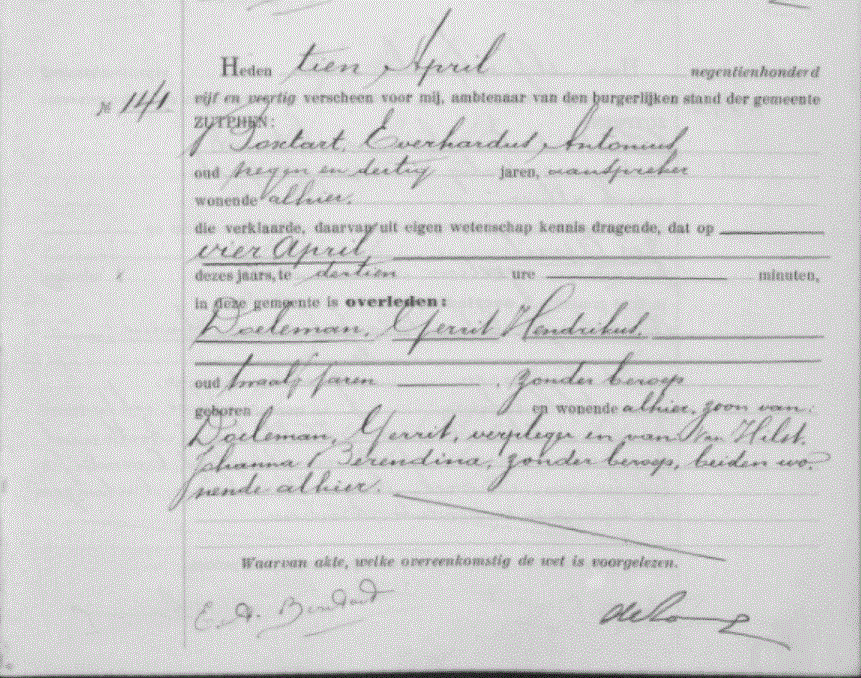 Heden tien April negentienhonderd
№ 141 vijf en veertig verscheen voor mij, ambtenaar van den burgerlijken stand der gemeente
ZUTPHEN:
Everhardus Antonius,
oud negen en dertig jaren, aanspreker
wonende alhier.
die verklaarde, daarvan uit eigen wetenschap kennis dragende, dat op
vier April
dezes jaars, te dertien ure minuten,
in deze gemeente is overleden:
Doeleman, Gerrit Hendrikus,
oud twaalf jaren , zonder beroep
geboren en wonende alhier, zoon van:
Doeleman, Gerrit, verpleger en van Van Hilst,
Johanna Berendina, zonder beroep, beiden wo-
nende alhier.
Waarvan akte, welke overeenkomstig de wet is voorgelezen.
E. A.